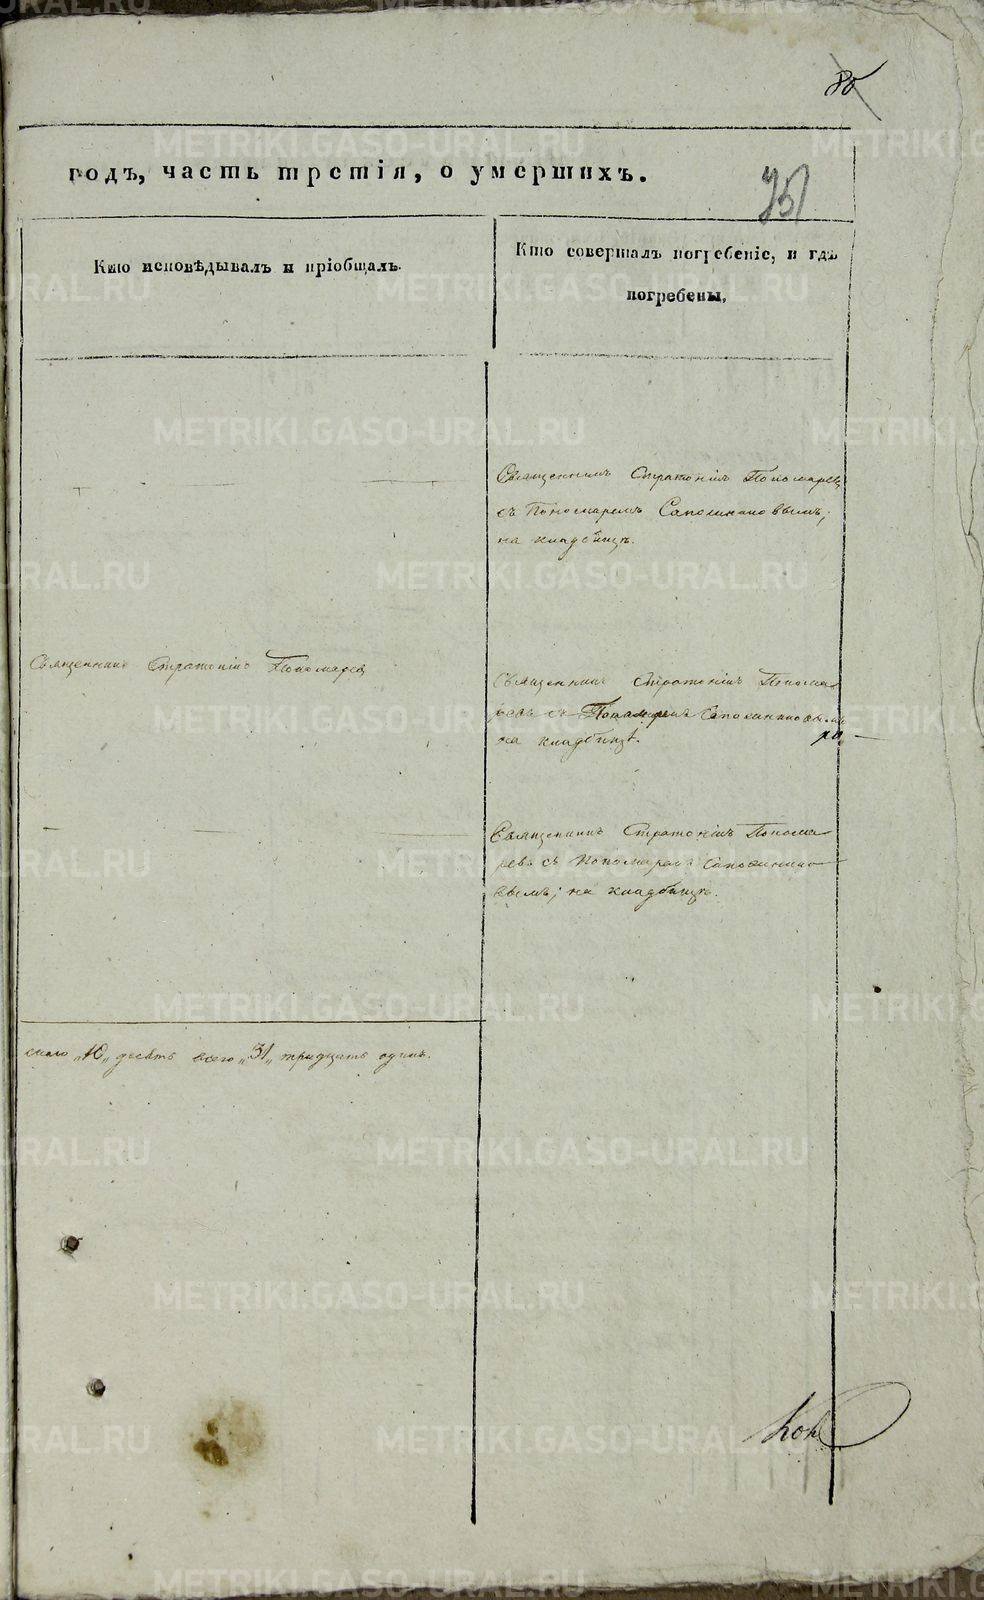 85
годъ, часть третія, о умершихъ.
751
Кто исповѣдывалъ и пріобщалъ.
Кто совершалъ погребеніе, и гдѣ
погребены,
Священникъ Стратоникъ Пономаревъ
съ Пономаремъ
на кладбищѣ.
Священникъ Стратоникъ Пономаревъ
Священникъ Стратоникъ Понома
ревъ съ Пономаремъ
на кладбищѣ.
Священникъ Стратоникъ Понома
ревъ съ Пономаремъ
вымъ; на кладбищѣ.
пола „10„ десять всего „31„ тридцать одинъ.
METRIKI.GASO-URAL.RU